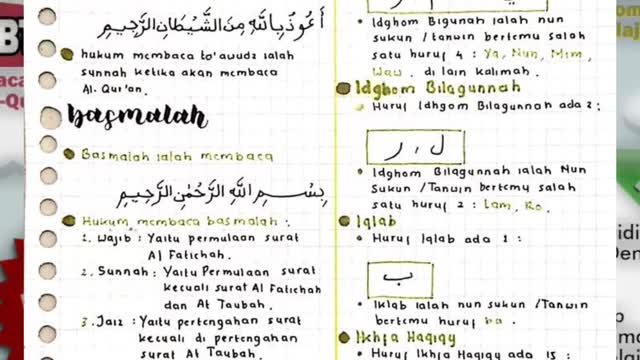 أَعُوْذُ بِاللّٰهِ مِنَ الشَّيْطَانِ الرَّجِيْمِ
hukum membaca ta'awudz ialah
sunnah ketika akan membaca
Al-Qur'an.
Basmalah
Basmalah ialah membaca
بِسْــمِ اللّٰهِ الرَّحْمٰنِ الرَّحِيْمِ
Hukum membaca basmalah :
1. Wajib : Yaitu permulaan surat
Al Fatichah.
2. Sunnah : Yaitu Permulaan surat
kecuali surat Al Fatichah
dan At Taubah.
3. Jaiz : Yaitu pertengahan surat
kecuali di pertengahan
surat At Taubah.
Idghom Bigunah ialah nun
sukun / tanwin bertemu salah
satu huruf 4 : Ya, Nun, Mim,
Waw. di lain kalimah.
Idghom Bilagunnah
Huruf Idhgom Bilagunnah ada 2 :
ل , ر
Idghom Bilagunnah ialah Nun
Sukun / Tanwin bertemu salah
satu huruf 2 : Lam, Ro.
Iqlab
Huruf Iqlab ada 1 :
ب
Iklab ialah nun sukun / Tanwin
bertemu huruf ba.
Ikhfa Haqiqy
Huruf Ikhfa Haqiqy ada 15 :